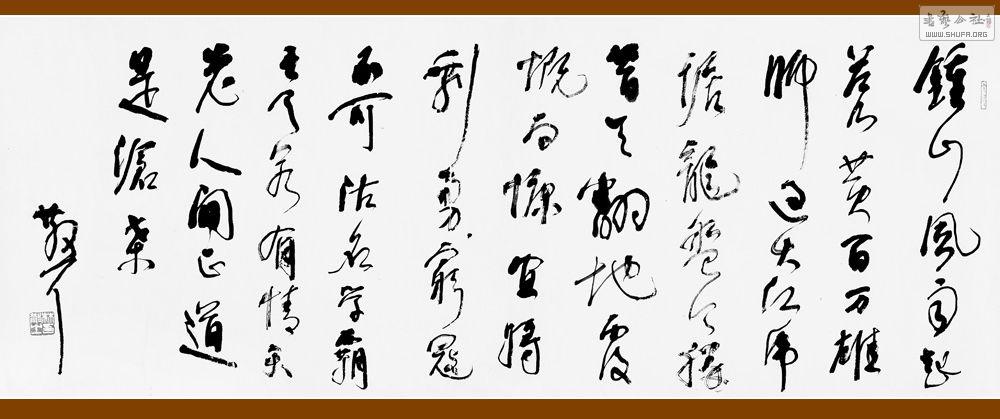 鍾山風雨起
蒼黄百万雄
師過大江虎
踞龍盤今勝
昔天翻地覆
慨而慷宜將
剩勇窮寇
不可沽名學霸
王天若有情天
老人間正道
是滄桑
书艺公社
WWW.SHUFA.ORG